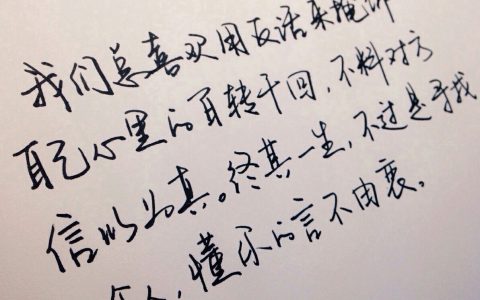 我们总喜欢用反话来掩饰
自己心里的百转千回，不料对方
信以为真。终其一生，不过是寻找
个人，懂你的言不由衷。